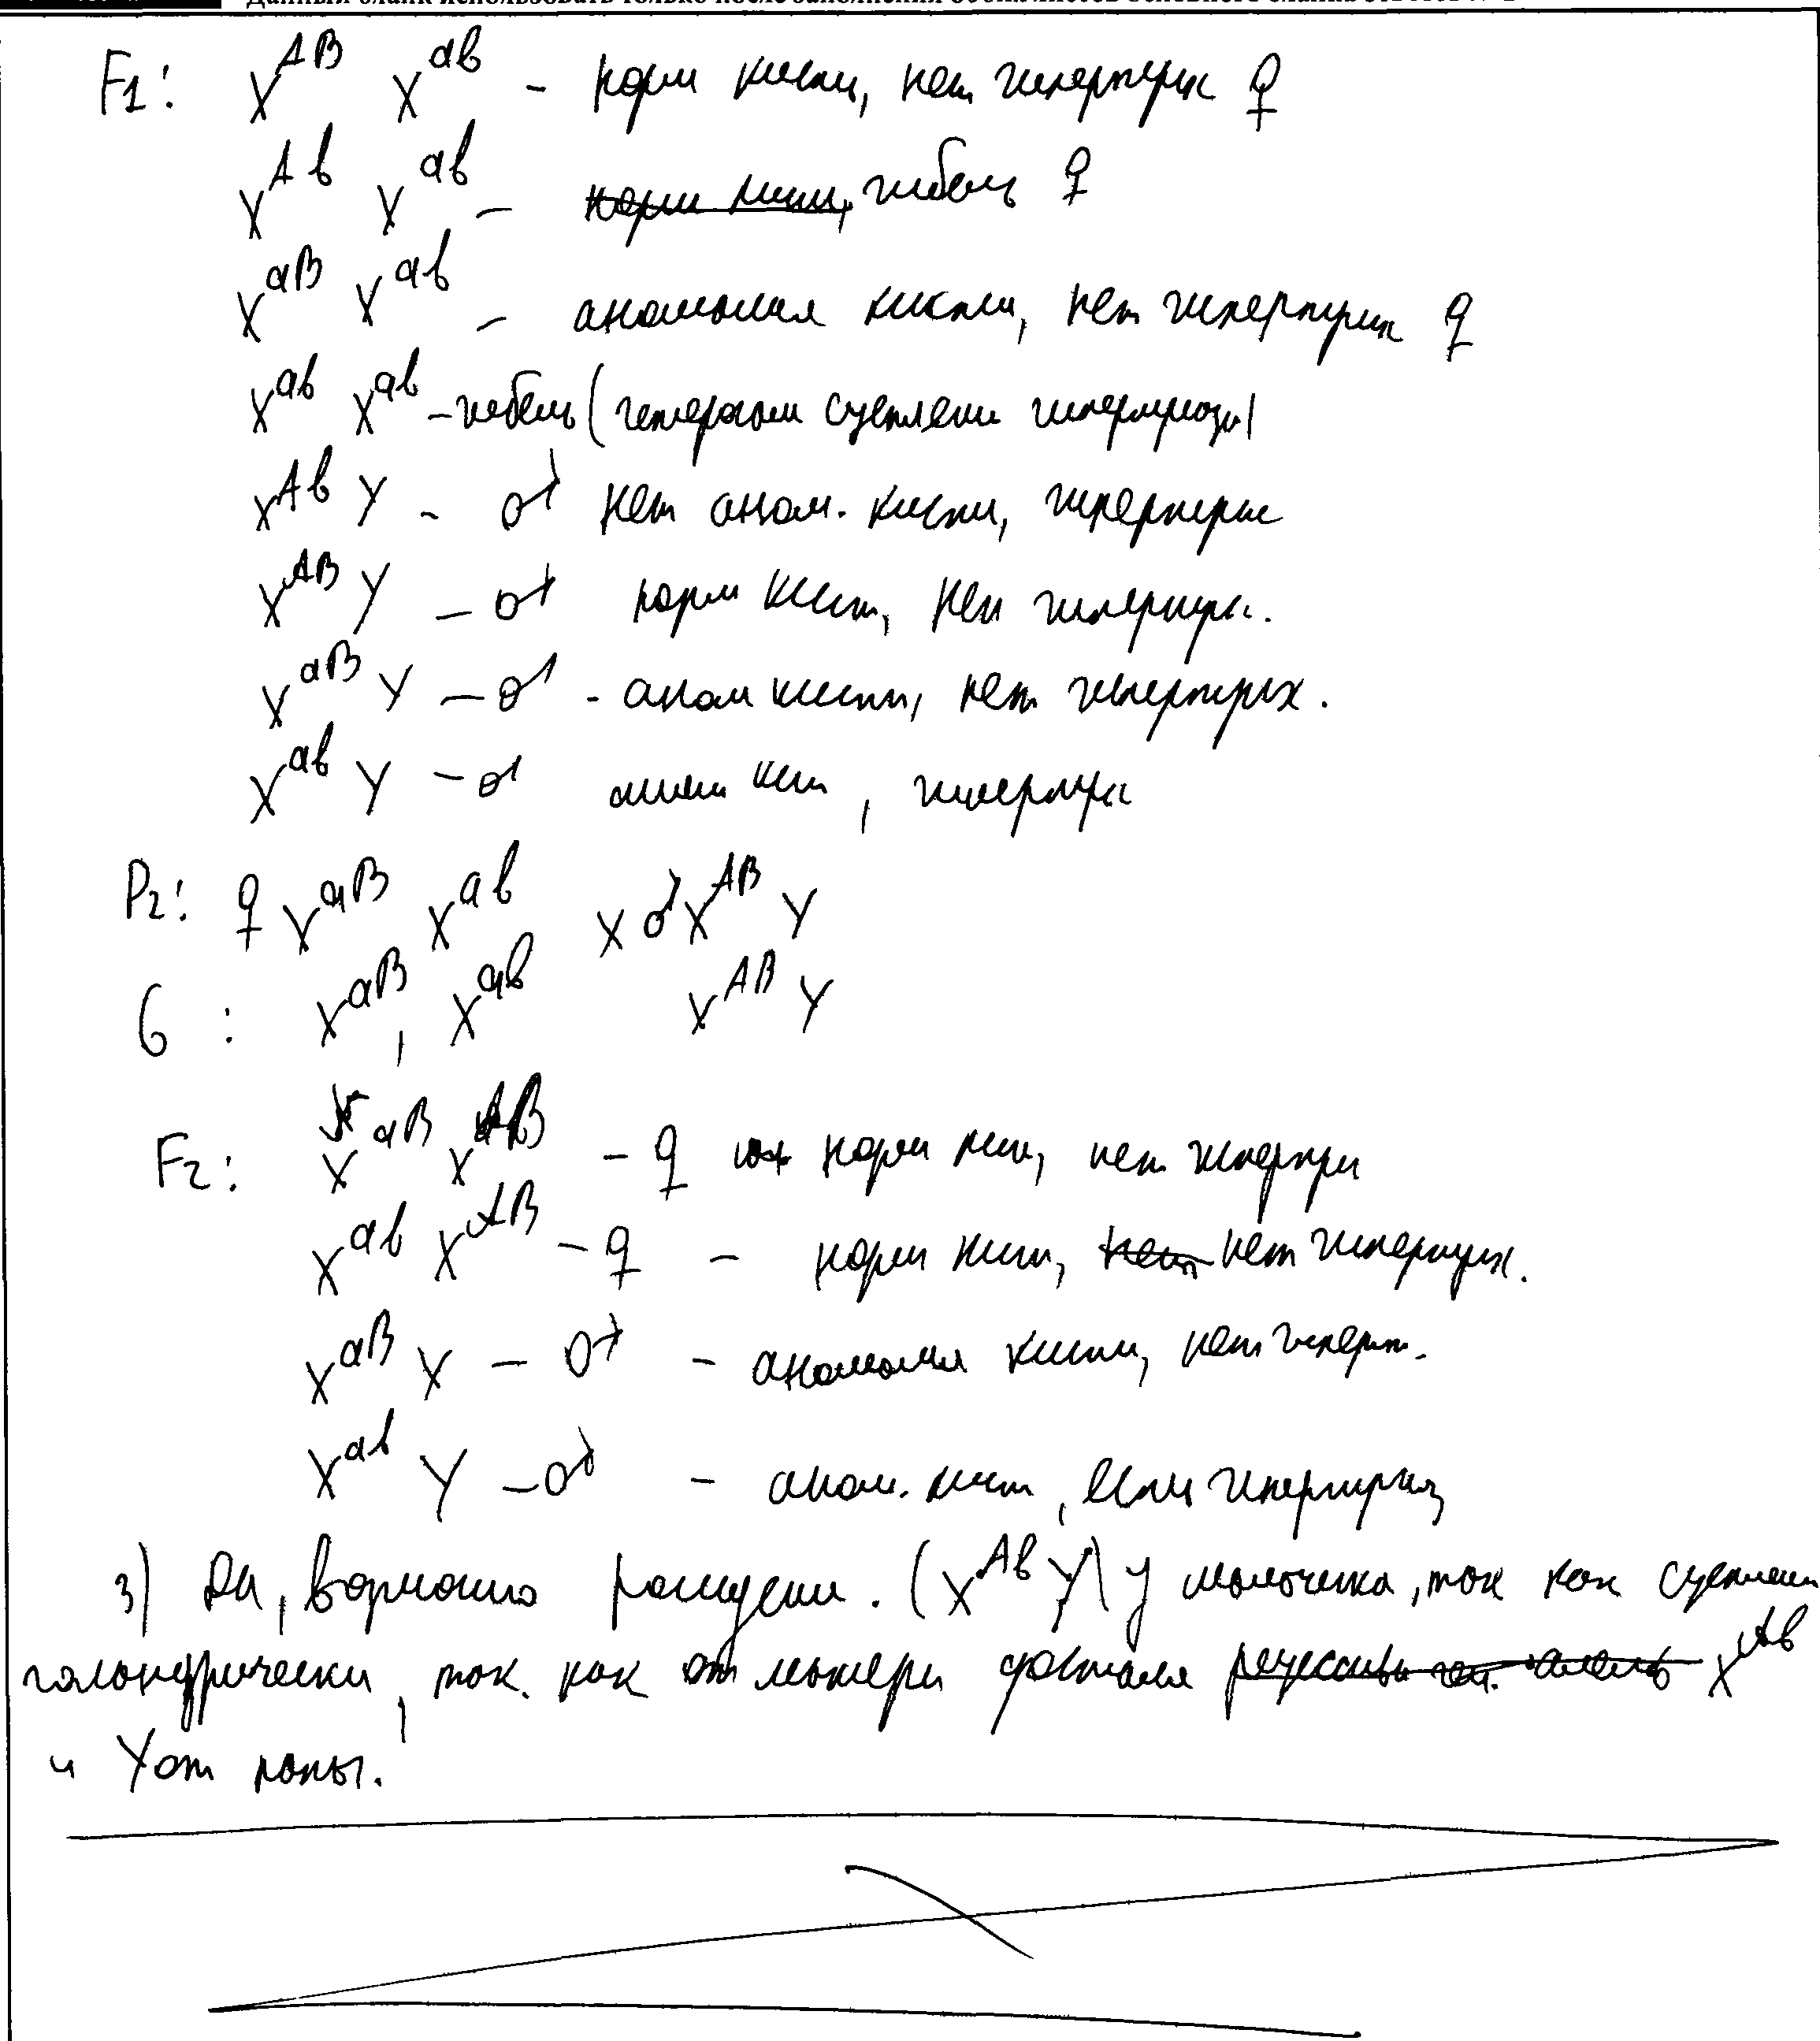 Данный бланк использовать только после заполнения обоих листов основного бланка ответов № 2
F1: X^AB X^ab – норм кисти, нет гипертрих ♀
X^Ab X^ab – норм кисти, гибель ♀
X^aB X^ab – аномалия кисти, нет гипертрих ♀
X^ab X^ab – гибель (
X^Ab Y – ♂ нет аном. кисти, гипертрих
X^AB Y – ♂ норм кист, нет гипертри.
X^aB Y – ♂ - аном кисти, нет гипертрих.
X^ab Y – ♂ аном кист, гипертри
P2: ♀ X^aB X^ab x ♂ X^AB Y
G : X^aB, X^ab X^AB Y
F2: X^aB X^AB – ♀ норм кис, нет гипертри
X^ab X^AB – ♀ – норм кист, нет нет гипертрих.
X^aB Y – ♂ – аномалия кисти, нет гиперт.
X^ab Y – ♂ – аном. кист, есть гипертрих
3) Да, возможно рождение. (X^Ab Y) у мальчика, так как сцеплен
голандрически, так. как от матери рецессивн X^Ab
и Y от папы.